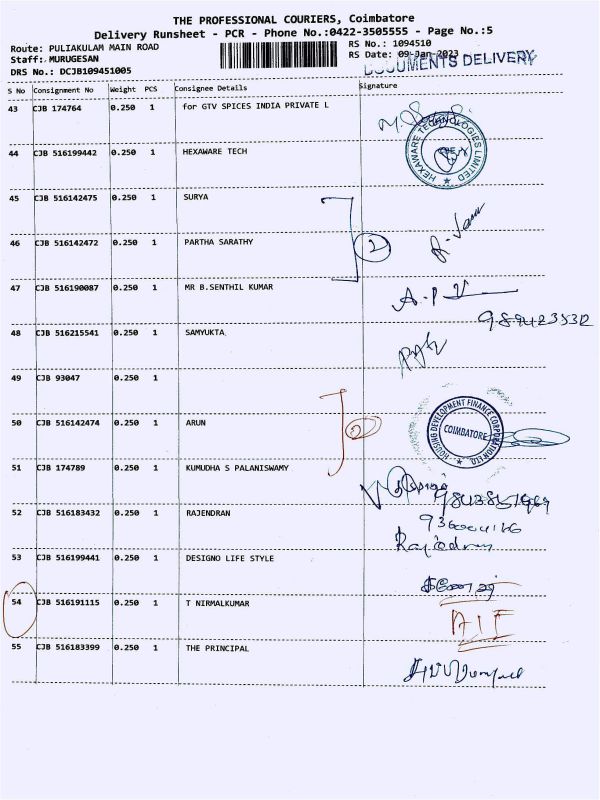 THE PROFESSIONAL COURIERS, Coimbatore
Delivery Runsheet - PCR - Phone No.:0422-3505555 - Page No.:5
Route: PULIAKULAM MAIN ROAD
RS No.: 1094510
Staff: MURUGESAN
RS Date: 09-Jan-2023
DOCUMENTS DELIVERY
DRS No.: DCJB109451005
S No Consignment No Weight PCS Consignee Details Signature
43 CJB 174764 0.250 1 for GTV SPICES INDIA PRIVATE L
HEXAWARE TECHNOLOGIES LIMITED
44 CJB 516199442 0.250 1 HEXAWARE TECH
45 CJB 516142475 0.250 1 SURYA
46 CJB 516142472 0.250 1 PARTHA SARATHY
2
47 CJB 516190087 0.250 1 MR B.SENTHIL KUMAR
48 CJB 516215541 0.250 1 SAMYUKTA
49 CJB 93047 0.250 1
50 CJB 516142474 0.250 1 ARUN
2
HOUSING DEVELOPMENT FINANCE CORPORATION LTD.
COIMBATORE
51 CJB 174789 0.250 1 KUMUDHA S PALANISWAMY
52 CJB 516183432 0.250 1 RAJENDRAN
53 CJB 516199441 0.250 1 DESIGNO LIFE STYLE
54 CJB 516191115 0.250 1 T NIRMALKUMAR
55 CJB 516183399 0.250 1 THE PRINCIPAL